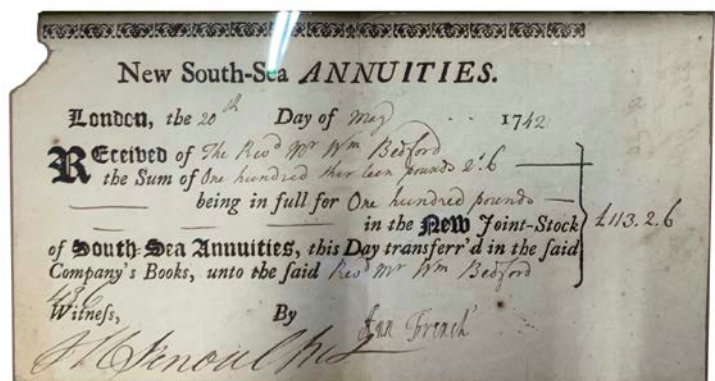 New South-Sea ANNUITIES.
London, the 20th Day of May 1742
REceived of The Revd Mr Wm Bedford
the Sum of One hundred thirteen pounds 2s.6
being in full for One hundred pounds
in the New Joint-Stock
£113.2.6
of South-Sea Annuities, this Day transferr'd in the said
Company's Books, unto the said Revd Mr Wm Bedford
Witness, By Ann French